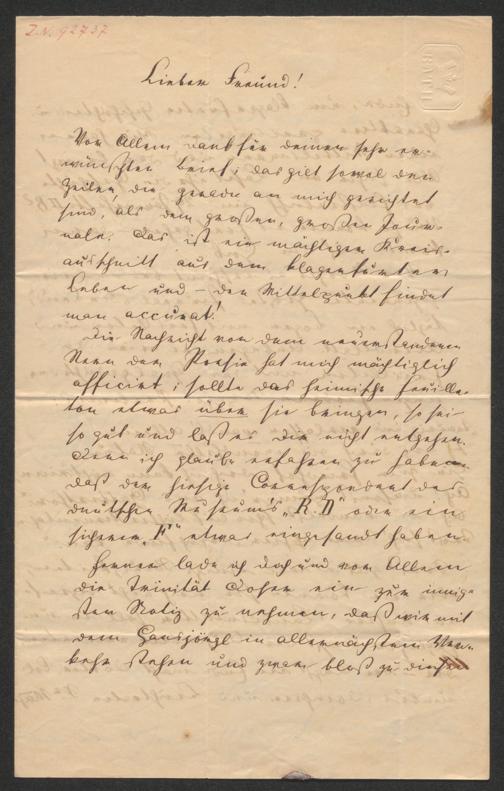 Z.N. 92737
BATH
Lieber Freund!
Vor Allem Dank für deinen sehr er-
wünschten Brief; das gilt sowol den
Zeilen, die gerade an mich gerichtet
sind, als dem großen, großen Jour-
nale. Das ist ein mächtiger Kreis-
ausschnitt aus dem Klagenfurter
Leben und – den Mittelpunkt findet
man accurat!
Die Nachricht von dem neuerstandenen
Stern der Poesie hat mich mächtiglich
afficirt; sollte das heimische Feuille-
ton etwas über sie bringen, so sei
so gut und laß es dir nicht entgehen.
Denn ich glaube erfahren zu haben
daß der hiesige Correspondent des
deutschen Museums „R.D" oder ein
sicherer „F" etwas eingesandt haben.
Ferner lade ich dich und vor Allem
die Trinität Koser ein zur innig-
sten Notiz zu nehmen, daß wir mit
dem Hansjörgl in allernächstem Ver-
kehr stehen und zwar bloß zu diesem